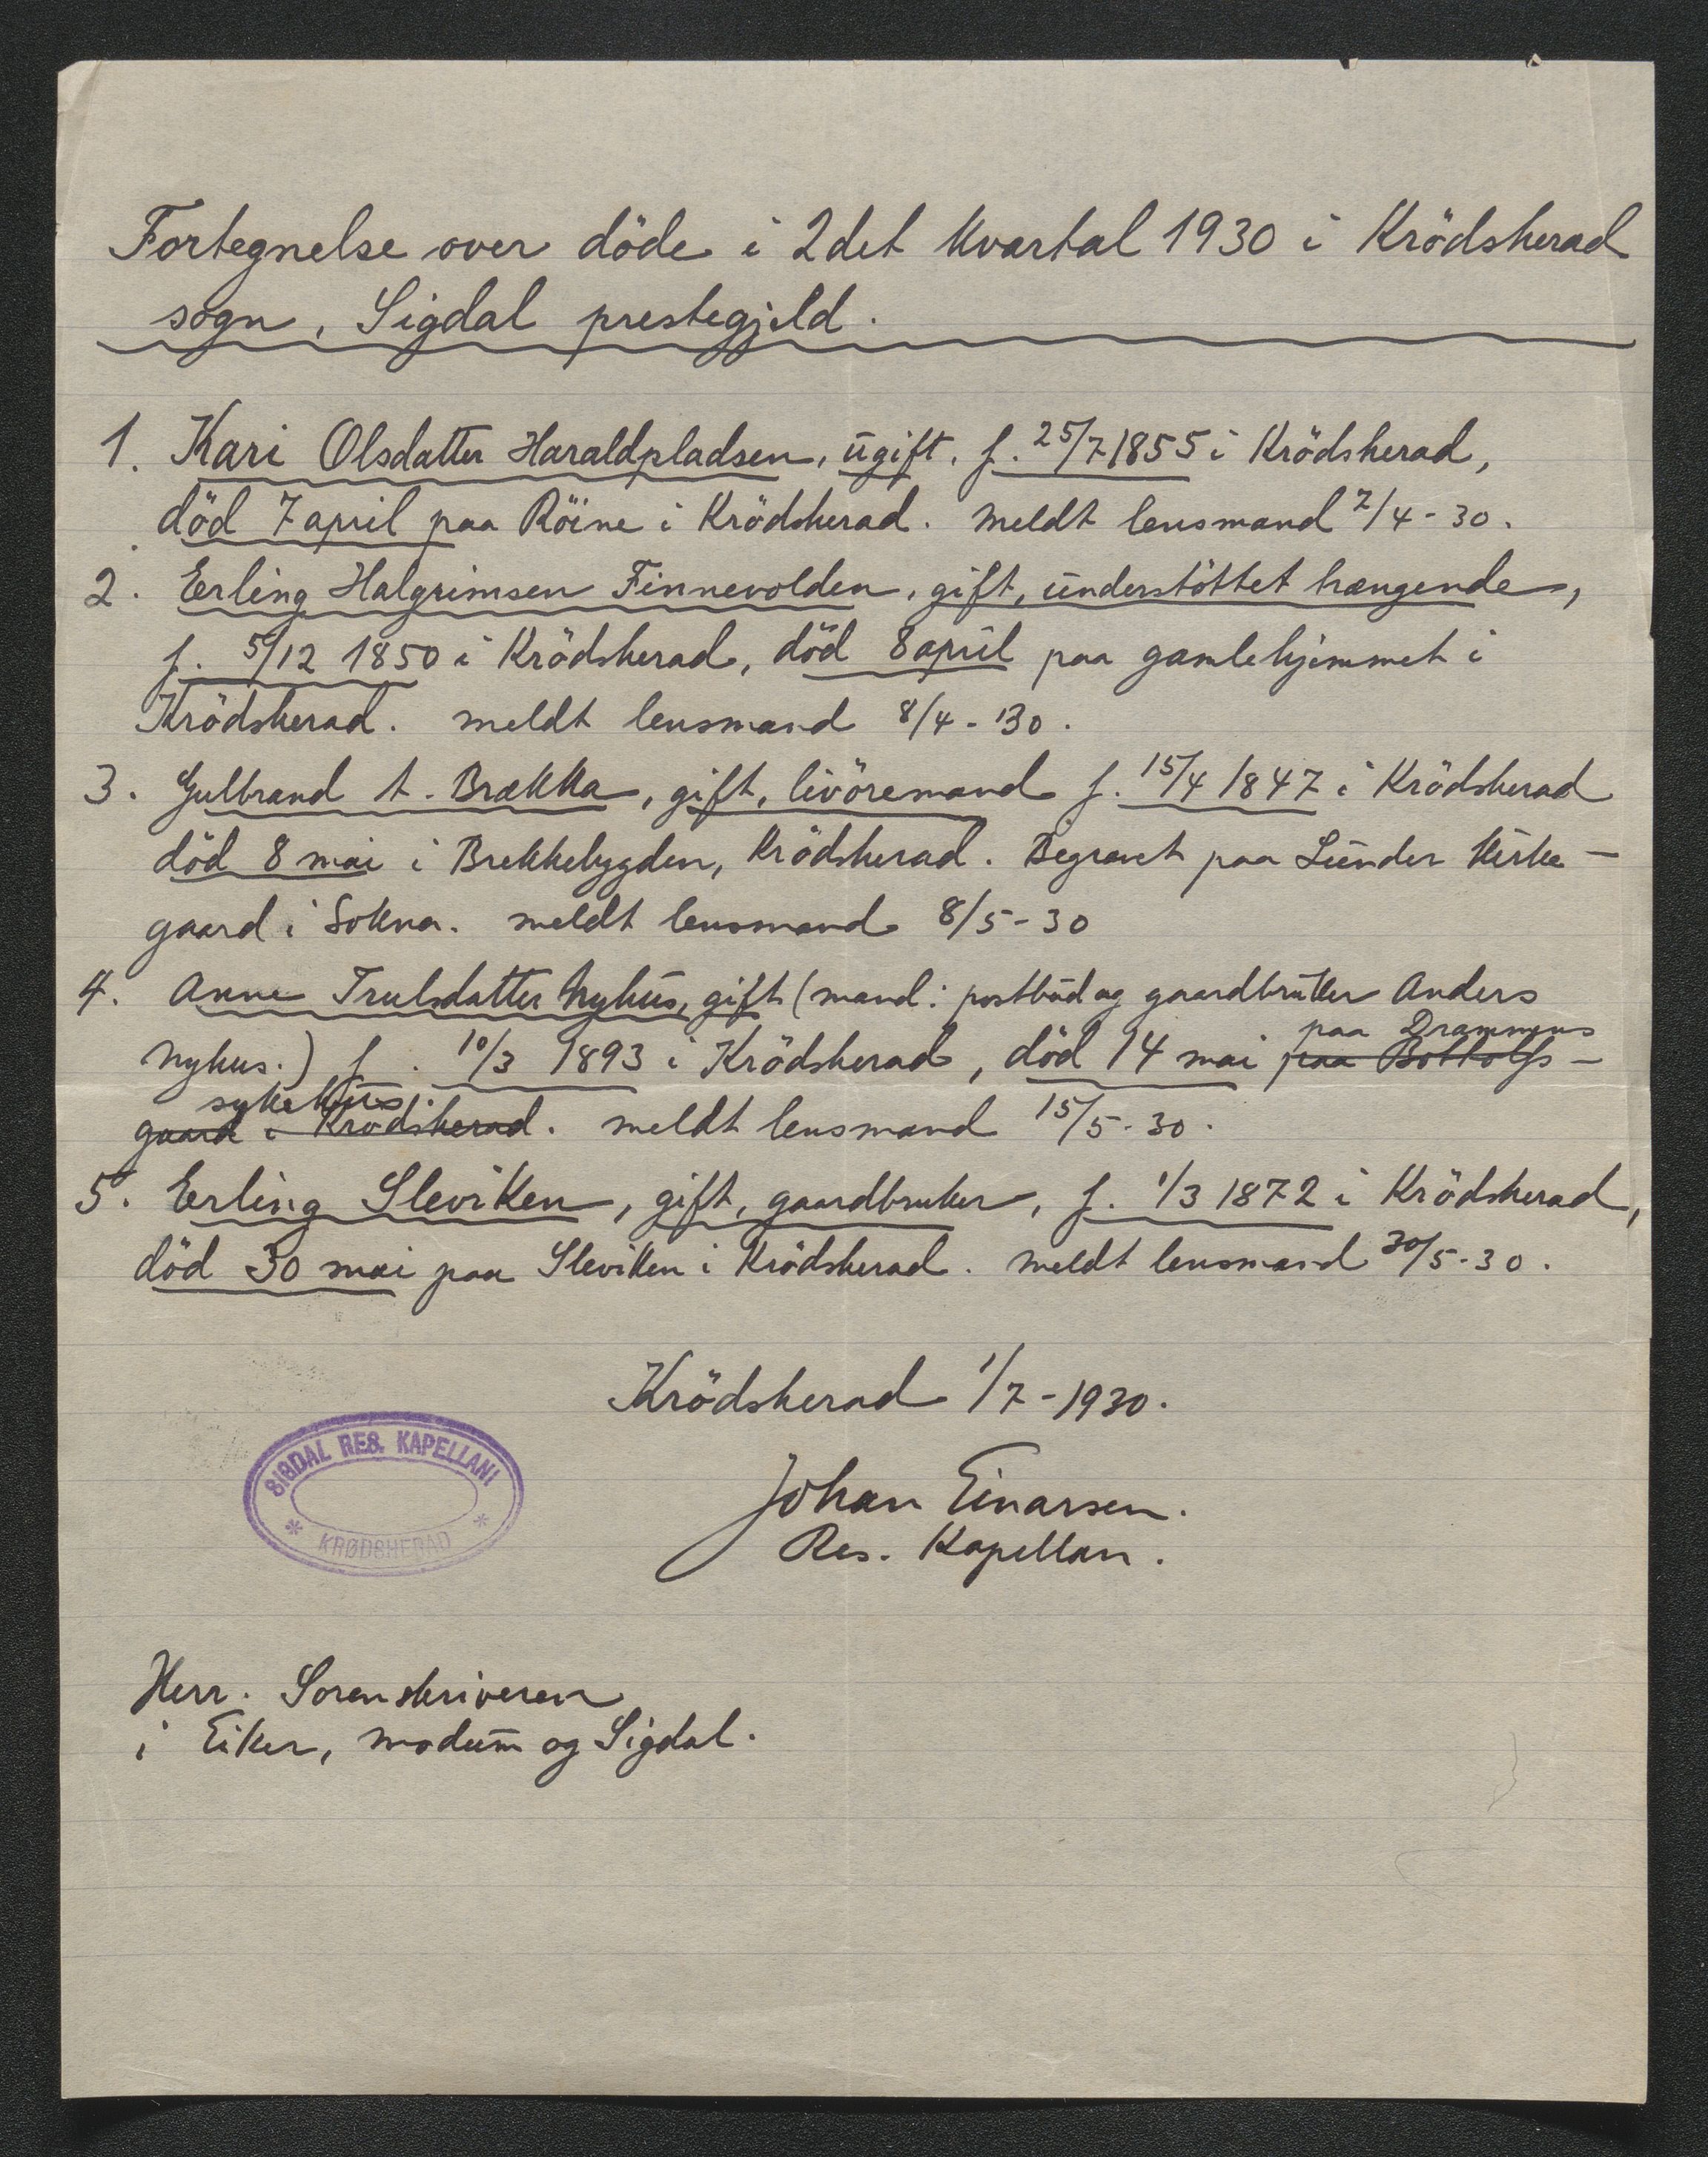 Fortegnelse over döde i 2det Kvartal 1930 i Krödsherad
sogn, Sigdal prestegjeld.
1. Kari Olsdatter Haraldpladsen, ugift. f. 25/7 1855 i Krödsherad,
död 7 april paa Röine i Krödsherad. meldt lensmand 7/4-30.
2. Erling Halgrimsen Finnevolden, gift, understöttet trængende,
f. 5/12 1850 i Krödsherad, död 8 april paa gamlehjemmet i
Krödsherad. meldt lensmand 8/4-30.
3. Gulbrand t. Brækka, gift, livöremand f. 15/4 1847 i Krödsherad
död 8 mai i Brekkebygden, Krödsherad. Begravet paa Lunder Kirke-
gaard i Sokna. meldt lensmand 8/5-30
4. Anne Trulsdatter Nyhus, gift (mand: postbud og gaardbruker Anders
Nyhus.) f. 10/3 1893 i Krödsherad, död 14 mai paa Drammens paa Bottolfs-
sykehus. gaard i Krödsherad. meldt lensmand 15/5-30.
5. Erling Sleviken, gift, gaardbruker, f. 1/3 1872 i Krödsherad,
död 30 mai paa Sleviken i Krödsherad. meldt lensmand 30/5-30.
Krödsherad 1/7-1930.
Johan Einarsen.
Res. Kapellan.
SIGDAL RES. KAPELLANI
* KRØDSHERAD *
Herr. Sorenskriveren
i Eiker, Modum og Sigdal.